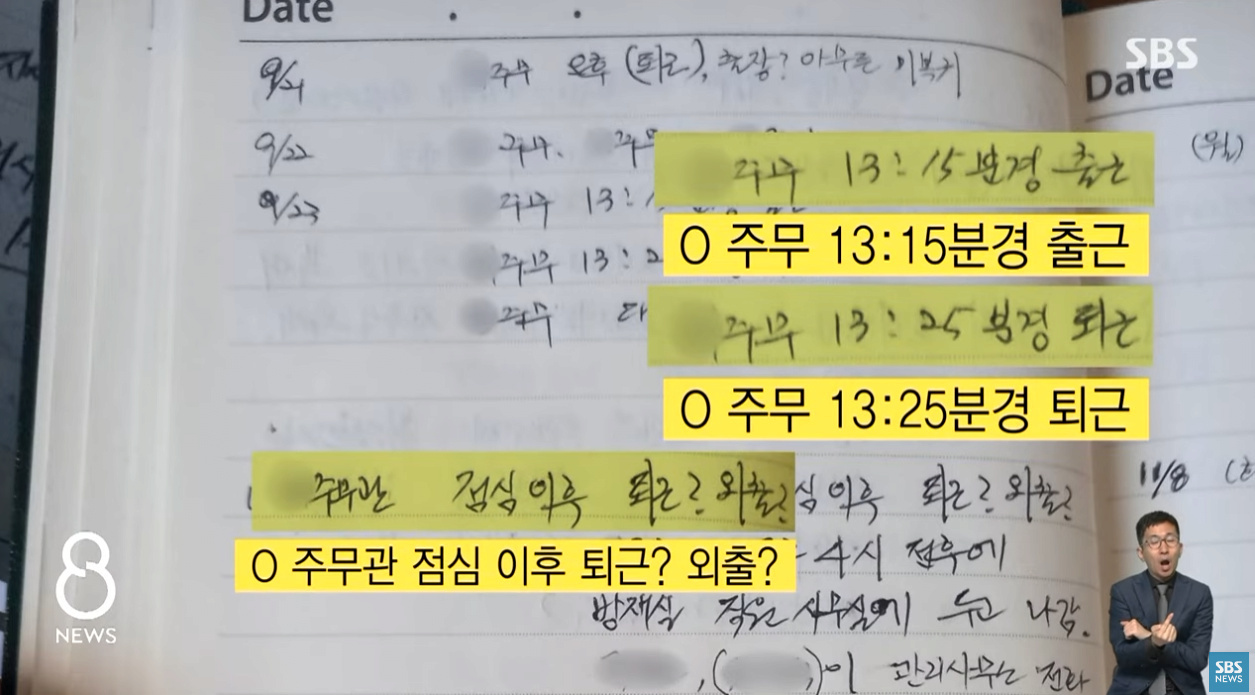 Date
SBS
Date
9/21 주무 오후 (퇴근), 출장? 아무튼 미복귀
9/22 주무. 주무
(월)
주무 13:15분경 출근
9/23 주무 13:1
O 주무 13:15분경 출근
주무 13:2
주무 13:25분경 퇴근
주무
O 주무 13:25분경 퇴근
주무관 점심이후 퇴근? 외출?
심이후 퇴근? 외출?
11/8
O 주무관 점심 이후 퇴근? 외출?
4시 전후에
방재실 작은 사무실에 두고 나감.
이 관리사무소 전화
8
NEWS
SBS
NEWS